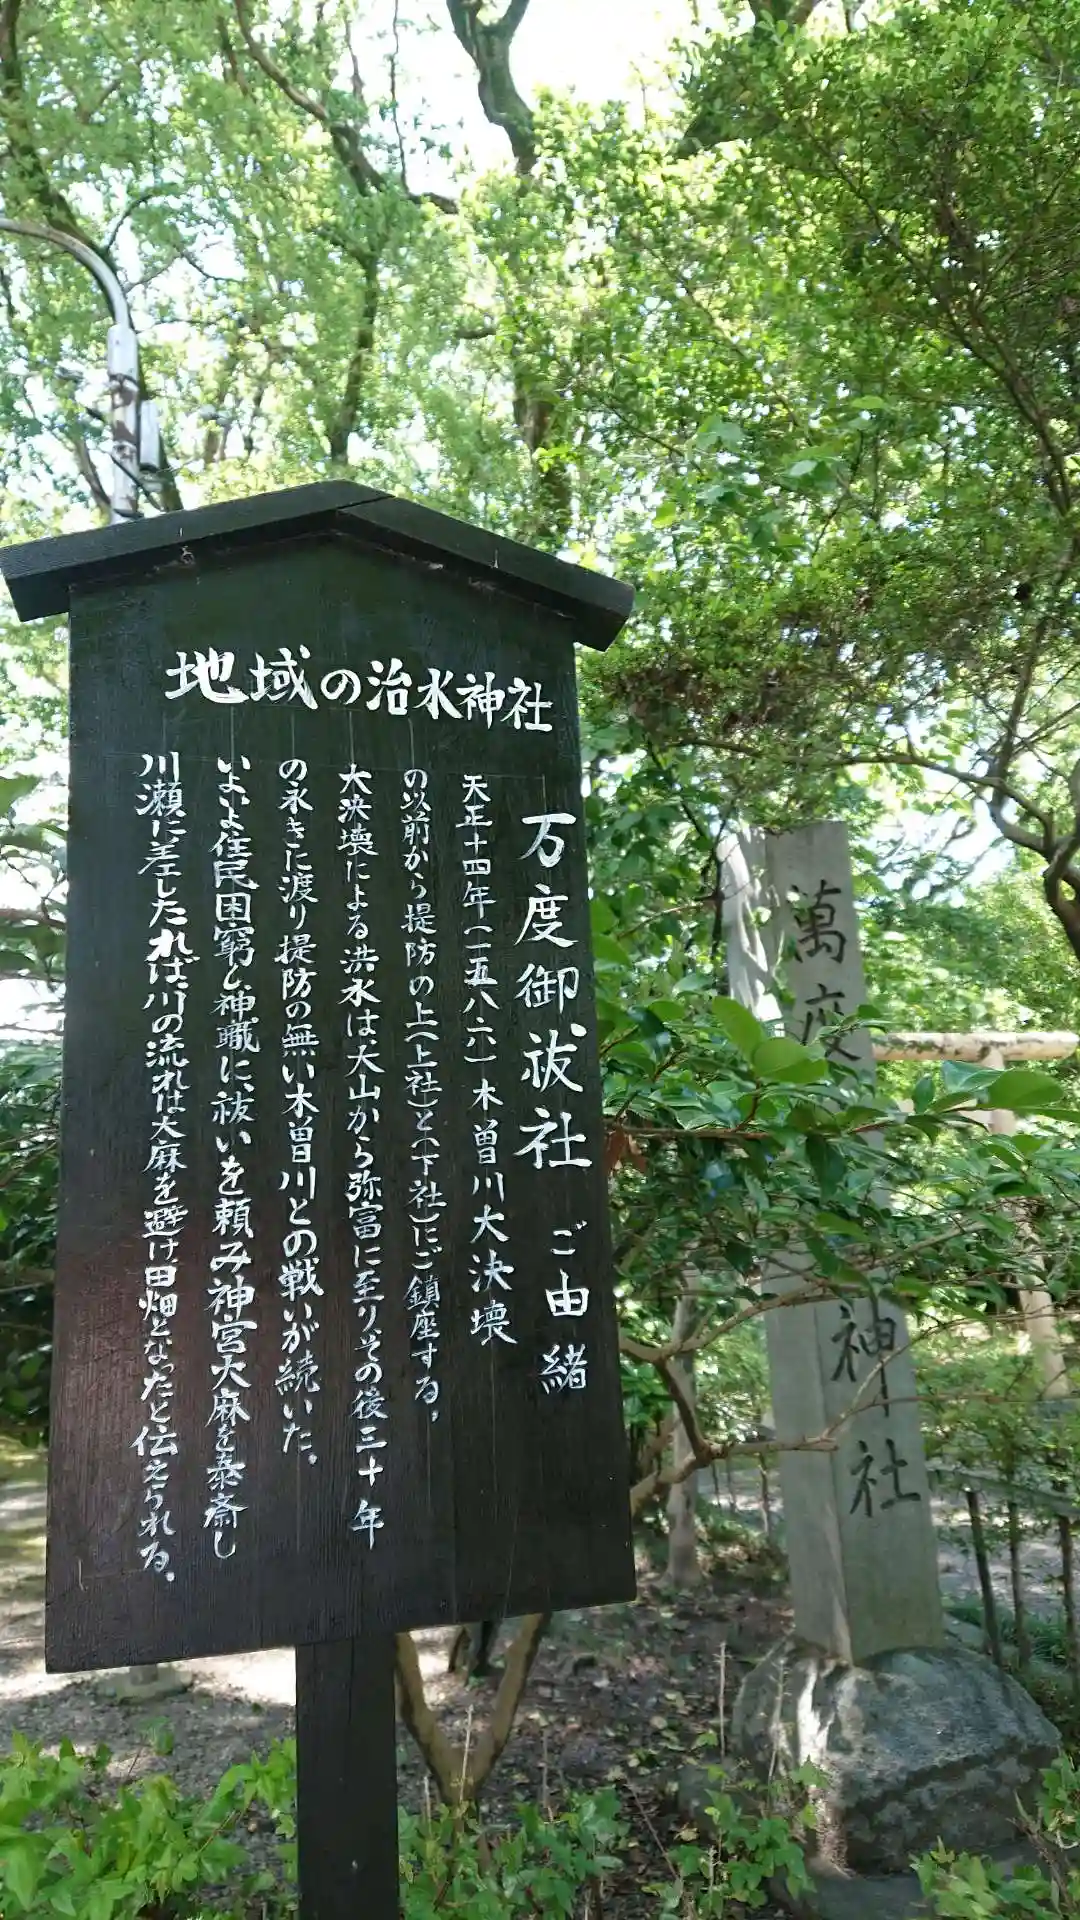 地域の治水神社
万度御祓社 ご由緒
天正十四年(一五八六)木曽川大決壊
の以前から提防の上(上社)と(下社)にご鎮座する。
大決壊による洪水は、犬山から弥富に至りその後三十年
の永きに渡り提防の無い木曽川との戦いが続いた。
いよいよ住民困窮し、神職に、祓いを頼み神宮大麻を奉斎し
川瀬に差したれば、川の流れは大麻を避け田畑となったと伝えられる。
萬度
神社